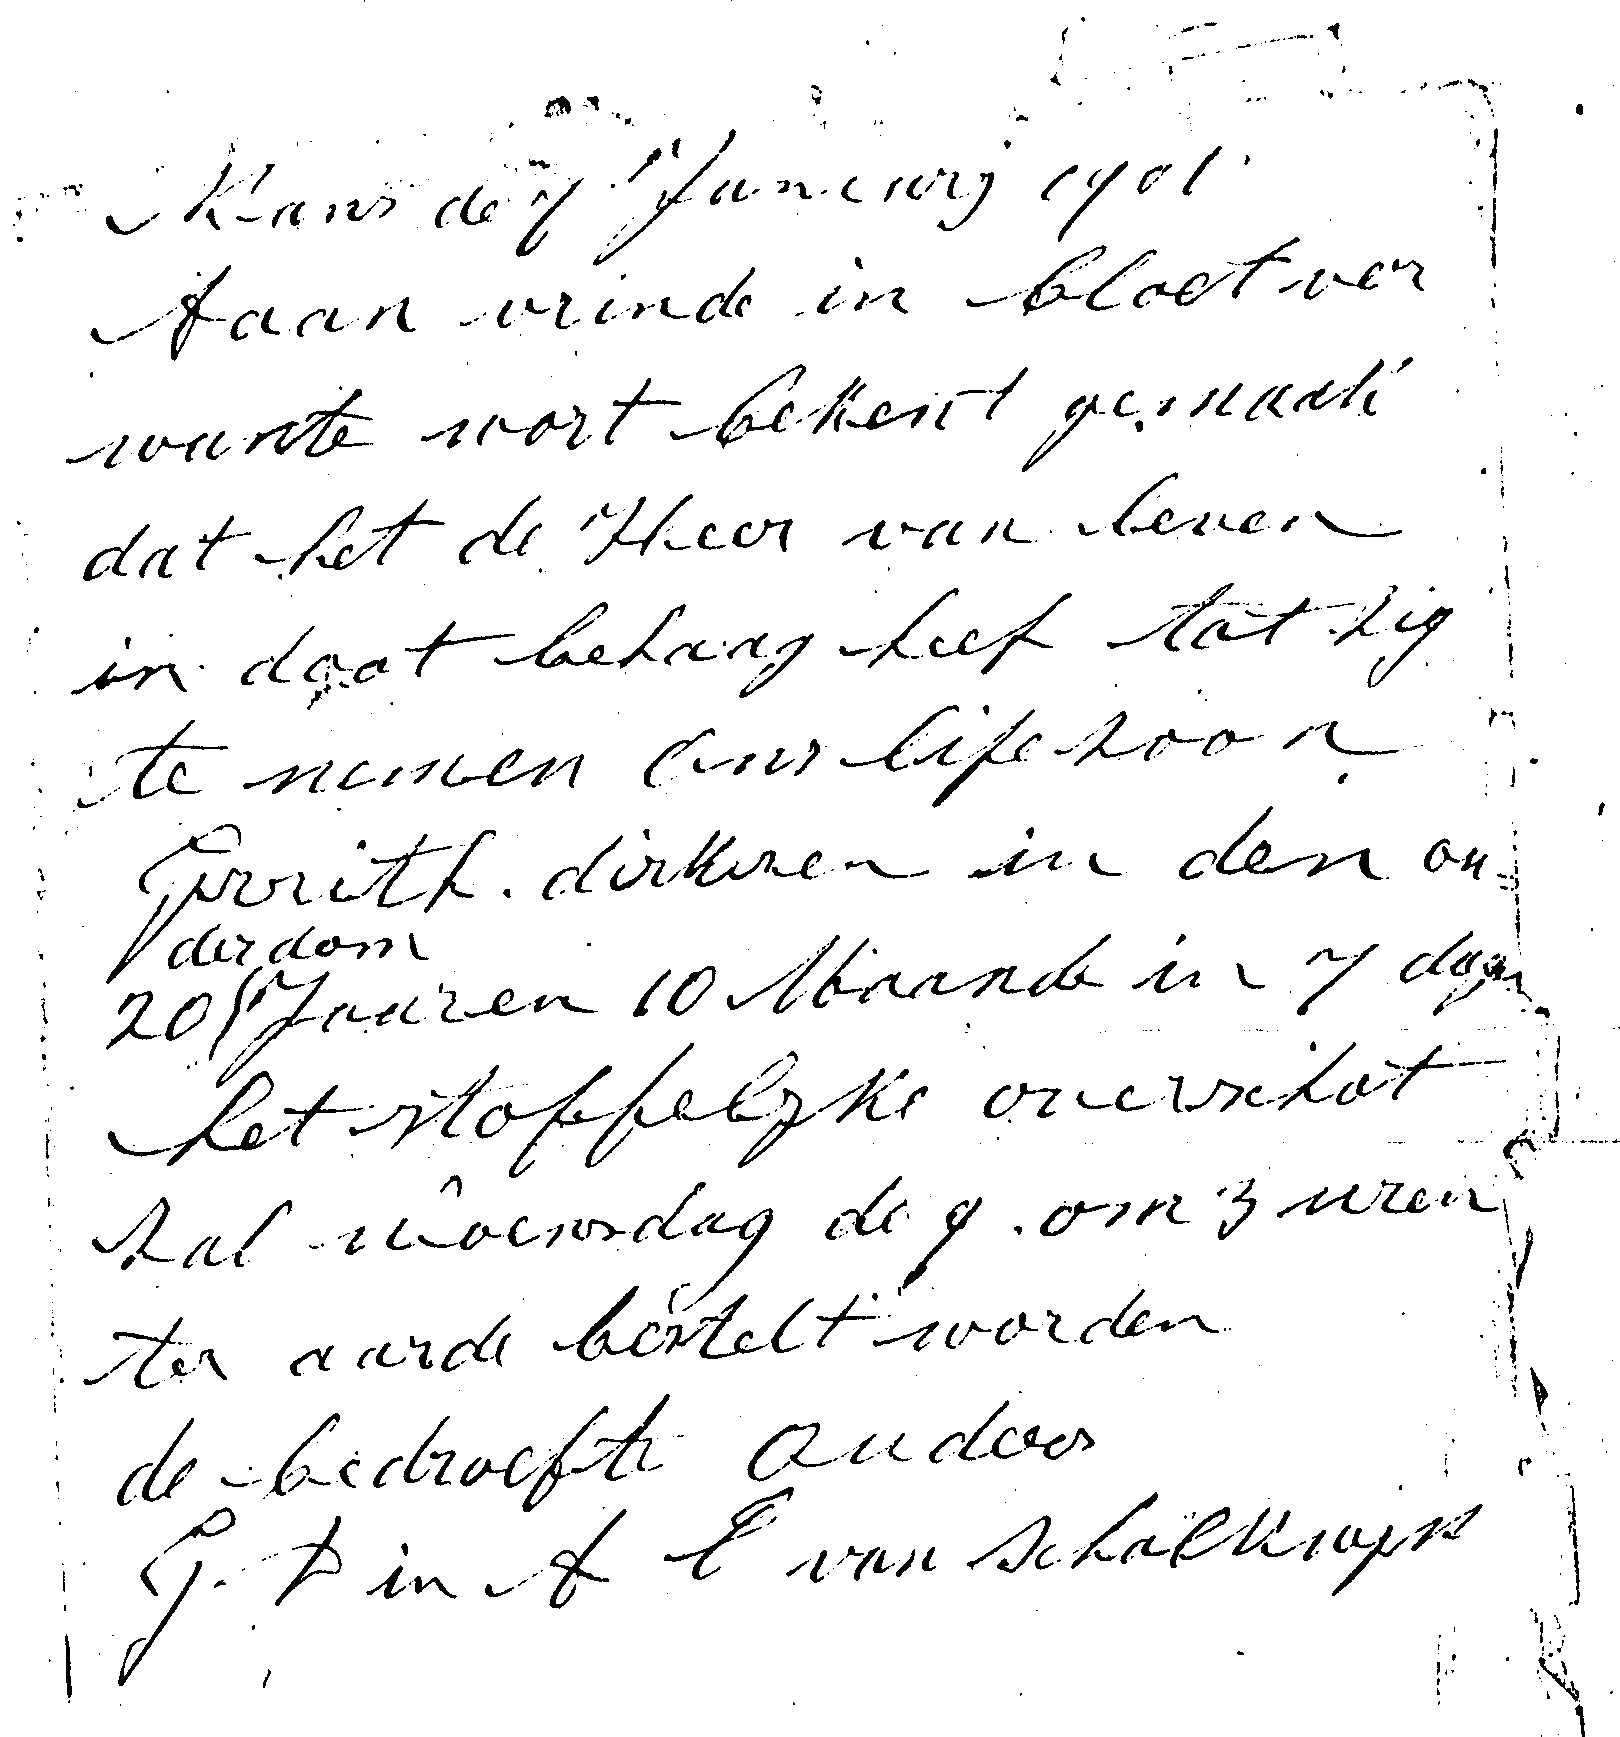 Kans de 7 Januarij 1901
Aaan vrinde in bloet ver
wante wort bekent gemaak
dat het de Heer van leven
in doot behaag heef tot zig
te nemen Ons life zoon
Gerrith. dirksen in den ou-
derdom
20 Jaaren 10 Maande in 7 dagen
het stoffelyke overschot
zal woensdag de 9. om 3 uren
ter aarde bestelt worden
de bedroefte Ouders
G. P in A E van schalkwijk